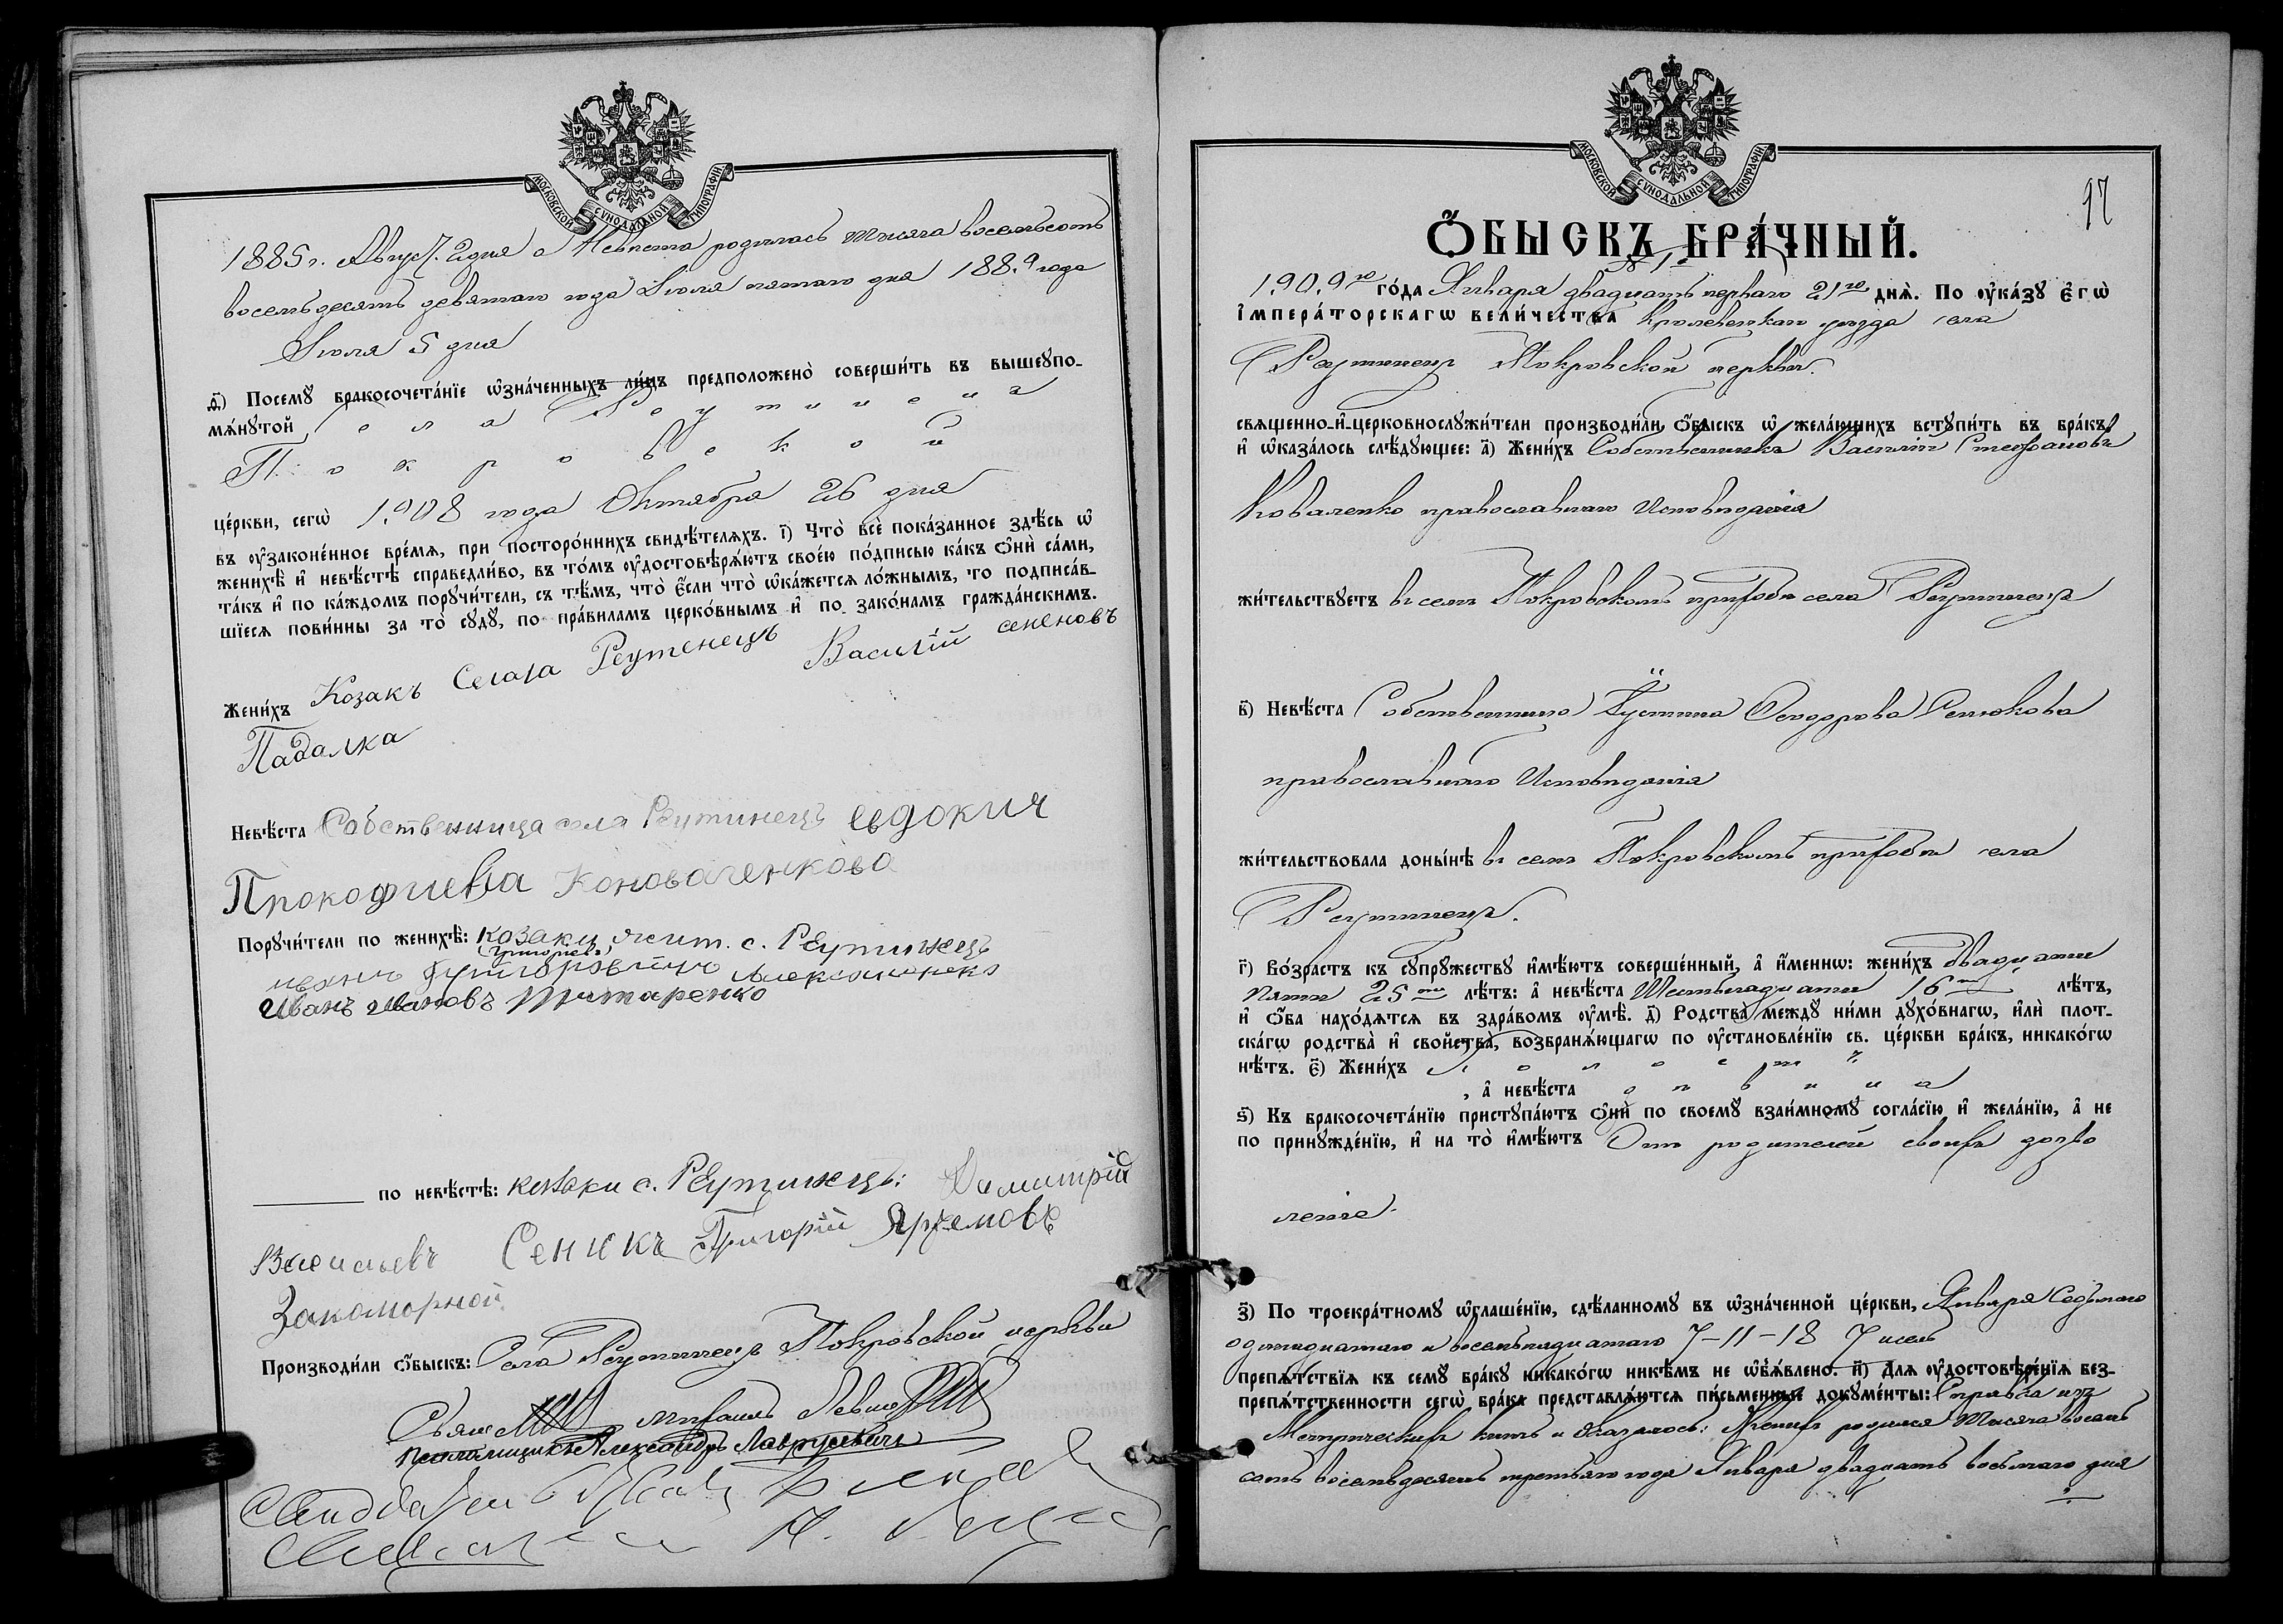 МОСКОВСКОЙ СѴНОДАЛЬНОЙ ТИПОГРАФІИ
1885 г. Август. 2 дня а Невеста родилась тысяча восемьсотъ
восемьдесятъ девятаго года Іюля пятаго дня 1889 года
Іюля 5 дня
д҃) Посемꙋ бракосочета́нїе ѡ҆зна́ченныхъ ли́цъ предположено̀ соверши́ть въ вышеꙋпо-
мѧ́нꙋтой села Реутинецъ
Покровской
це́ркви, сегѡ̀ 1908 года Октября 26 дня
въ ᲂу҆законе́нное вре́мѧ, при посторо́ннихъ свидѣ́телѧхъ. і҃) Что̀ всѐ пока́занное здѣ́сь ѡ҆
женихѣ̀ и҆ невѣ́стѣ справедли́во, въ то́мъ ᲂу҆достовѣрѧ́ютъ свое́ю по́дписью ка́къ ѻ҆нѝ са́ми,
та́къ и҆ по ка́ждомъ порꙋчи́тели, съ тѣ́мъ, что̀ є҆́сли что̀ ѡ҆ка́жется ло́жнымъ, то подписа́в-
шїеся пови́нны за то̀ сꙋдꙋ̀, по пра́виламъ церко́внымъ и҆ по зако́намъ гражда́нскимъ.
Жени́хъ Козакъ Села Реутенецъ Василій сененовъ
Падалка
Невѣ́ста Собственница села Реутинецъ Евдокия
Прокофиева Коноваленкова
Порꙋчи́тели по женихѣ̀: козаки жит. с. Реутинецъ
(Григорьев)
Иванъ Ивановъ Титаренко
по невѣ́стѣ: козаки с. Реутинецъ: Димитрій
Васильевъ Сеникъ Григорій Артемовъ
Закоморной
Производи́ли ѻ҆́быскъ: Села Реутинецъ Покровской церкви
Свящ. Михаилъ
Псаломщикъ Александръ Лаврусевичъ
МОСКОВСКОЙ СѴНОДАЛЬНОЙ ТИПОГРАФІИ
17
Ѻ҆́БЫСКЪ БРА́ЧНЫЙ.
№ 1.
1909го го́да Января двадцать перваго 21го днѧ̀. По ᲂу҆ка́зꙋ є҆гѡ̀
і҆мпера́торскагѡ вели́чества Кролевецкаго уезда села
Реутинецъ Покровской церкви.
свѧщенно-и҆-церковнослꙋжи́тели производи́ли ѻ҆́быскъ ѡ҆ жела́ющихъ встꙋпи́ть въ бра́къ,
и҆ ѡ҆каза́лось слѣ́дꙋющее: а҃) Жени́хъ Собственникъ Василій Стефановъ
Коваленко православнаго Исповеданія
жи́тельствꙋетъ въ семъ Покровскомъ приходе села Реутинецъ
в҃) Невѣ́ста Собственница Іустина Феодорова Сенюкова
православнаго Исповеданія
жи́тельствовала доны́нѣ въ семъ Покровскомъ приходе села
Реутинецъ.
г҃) Во́зрастъ къ сꙋпрꙋ́жествꙋ и҆мѣ́ютъ соверше́нный, а҆ и҆́меннѡ: жени́хъ двадцати
пяти 25ти лѣ́тъ: а҆ невѣ́ста Шестьнадцати 16ти лѣ́тъ,
и҆ ѻ҆́ба нахо́дѧтсѧ въ здра́вомъ ᲂу҆мѣ̀. д҃) Родства̀ междꙋ̀ ни́ми дꙋхо́внагѡ, и҆лѝ плот-
ска́гѡ родства̀ и҆ свойства̀, возбранѧ́ющагѡ по ᲂу҆становле́нїю св. це́ркви бра́къ, никако́гѡ
нѣ́тъ. є҃) Жени́хъ холостъ
, а҆ невѣ́ста девица
ѕ҃) Къ бракосочета́нїю пристꙋпа́ютъ ѻ҆нѝ по своемꙋ̀ взаи́мномꙋ согла́сїю и҆ жела́нїю, а҆ не
по принꙋжде́нїю, и҆ на то̀ и҆мѣ́ютъ Отъ родителей своихъ дозво
леніе.
з҃) По троекра́тномꙋ ѡ҆глаше́нїю, сдѣ́ланномꙋ въ ѡ҆зна́ченной це́ркви, Января Седьмаго
одинадцатаго и восемьнадцатаго 7-11-18 Чиселъ
препѧ́тствїѧ къ семꙋ̀ бра́кꙋ никако́гѡ никѣ́мъ не ѡ҆б̾ѧ́влено. и҃) Длѧ ᲂу҆достовѣре́нїѧ без-
препѧ́тственности сегѡ̀ бра́ка представлѧ́ютсѧ пи́сьменные докꙋме́нты: Справка изъ
Метрическихъ книгъ и Оказалось: Женихъ родился Тысяча восемь
сотъ восемьдесятъ третьяго года Января двадцать восьмаго дня